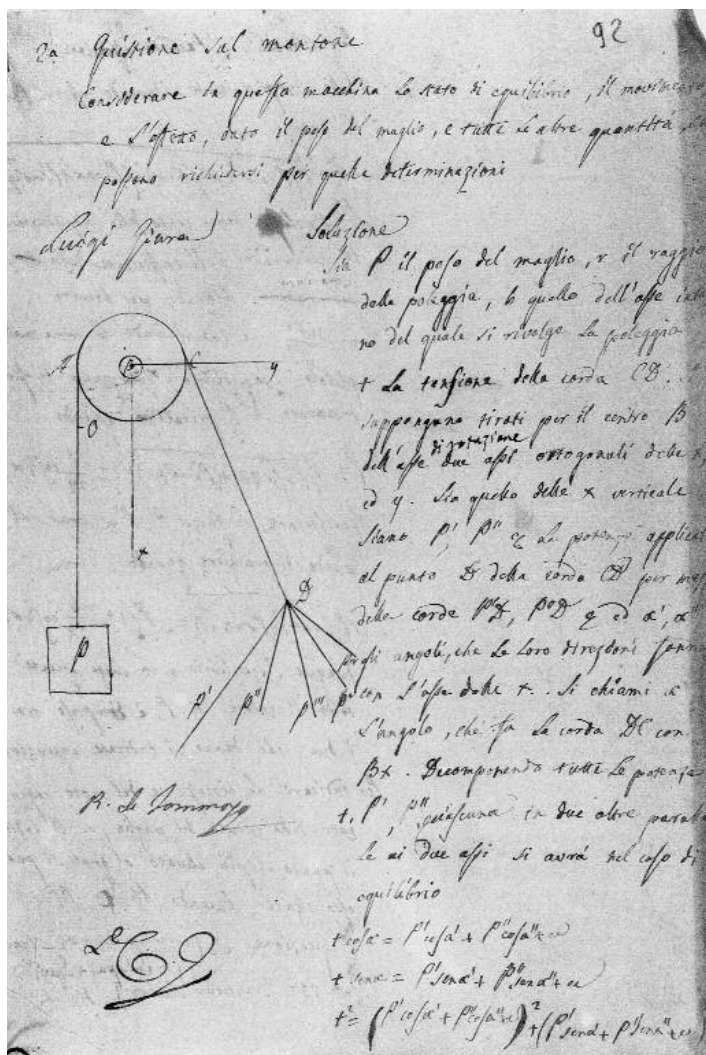 92
2a Quistione sul montone
Considerare in questa macchina lo stato di equilibrio, il movimento
e l'effetto, dato il peso del maglio, e tutte le altre quantità, che
possono richiedersi per quelle determinazioni
Luigi
Soluzione
Sia P il peso del maglio, r il raggio
della poleggia, h quello dell'asse intor
no del quale si rivolge la poleggia
t la tensione della corda CD. Si
suppongano tirati per il centro B
di rotazione
dell'asse due assi ortogonali delle x,
ed y. Sia quello delle x verticale
siano P', P'' &c le potenze applicate
al punto D della corda CD per mezzo
delle corde P'D, P''D & ed α', α''
gli angoli, che le loro direzioni
con l'asse delle x. Si chiami α
l'angolo, che fa la corda DC con
Bx. Decomponendo tutte le potenze
t, P', P'' ciascuna in due altre paral
le ai due assi si avrà nel caso di
equilibrio
t cosα = P'cosα' + P''cosα'' + &c
t senα = P'senα' + P''senα'' + &c
t² = (P'cosα' + P''cosα'' + &c)² + (P'senα' + P''senα'' + &c)
A
B
C
y
O
x
D
P
P'
P''
P'''
R. De Tommaso